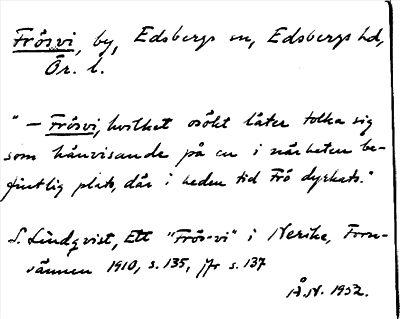 Frösvi, by, Edsbergs sn, Edsbergs hd,
Ör. l.
"— Frösvi, hvilket osökt låter tolka sig
som hänvisande på en i närheten be-
fintlig plats, där i heden tid Frö dyrkats."
S. Lindqvist, Ett "Frös-vi" i Nerike, Forn-
vännen 1910, s. 135, jfr s. 137
Å.N. 1952.